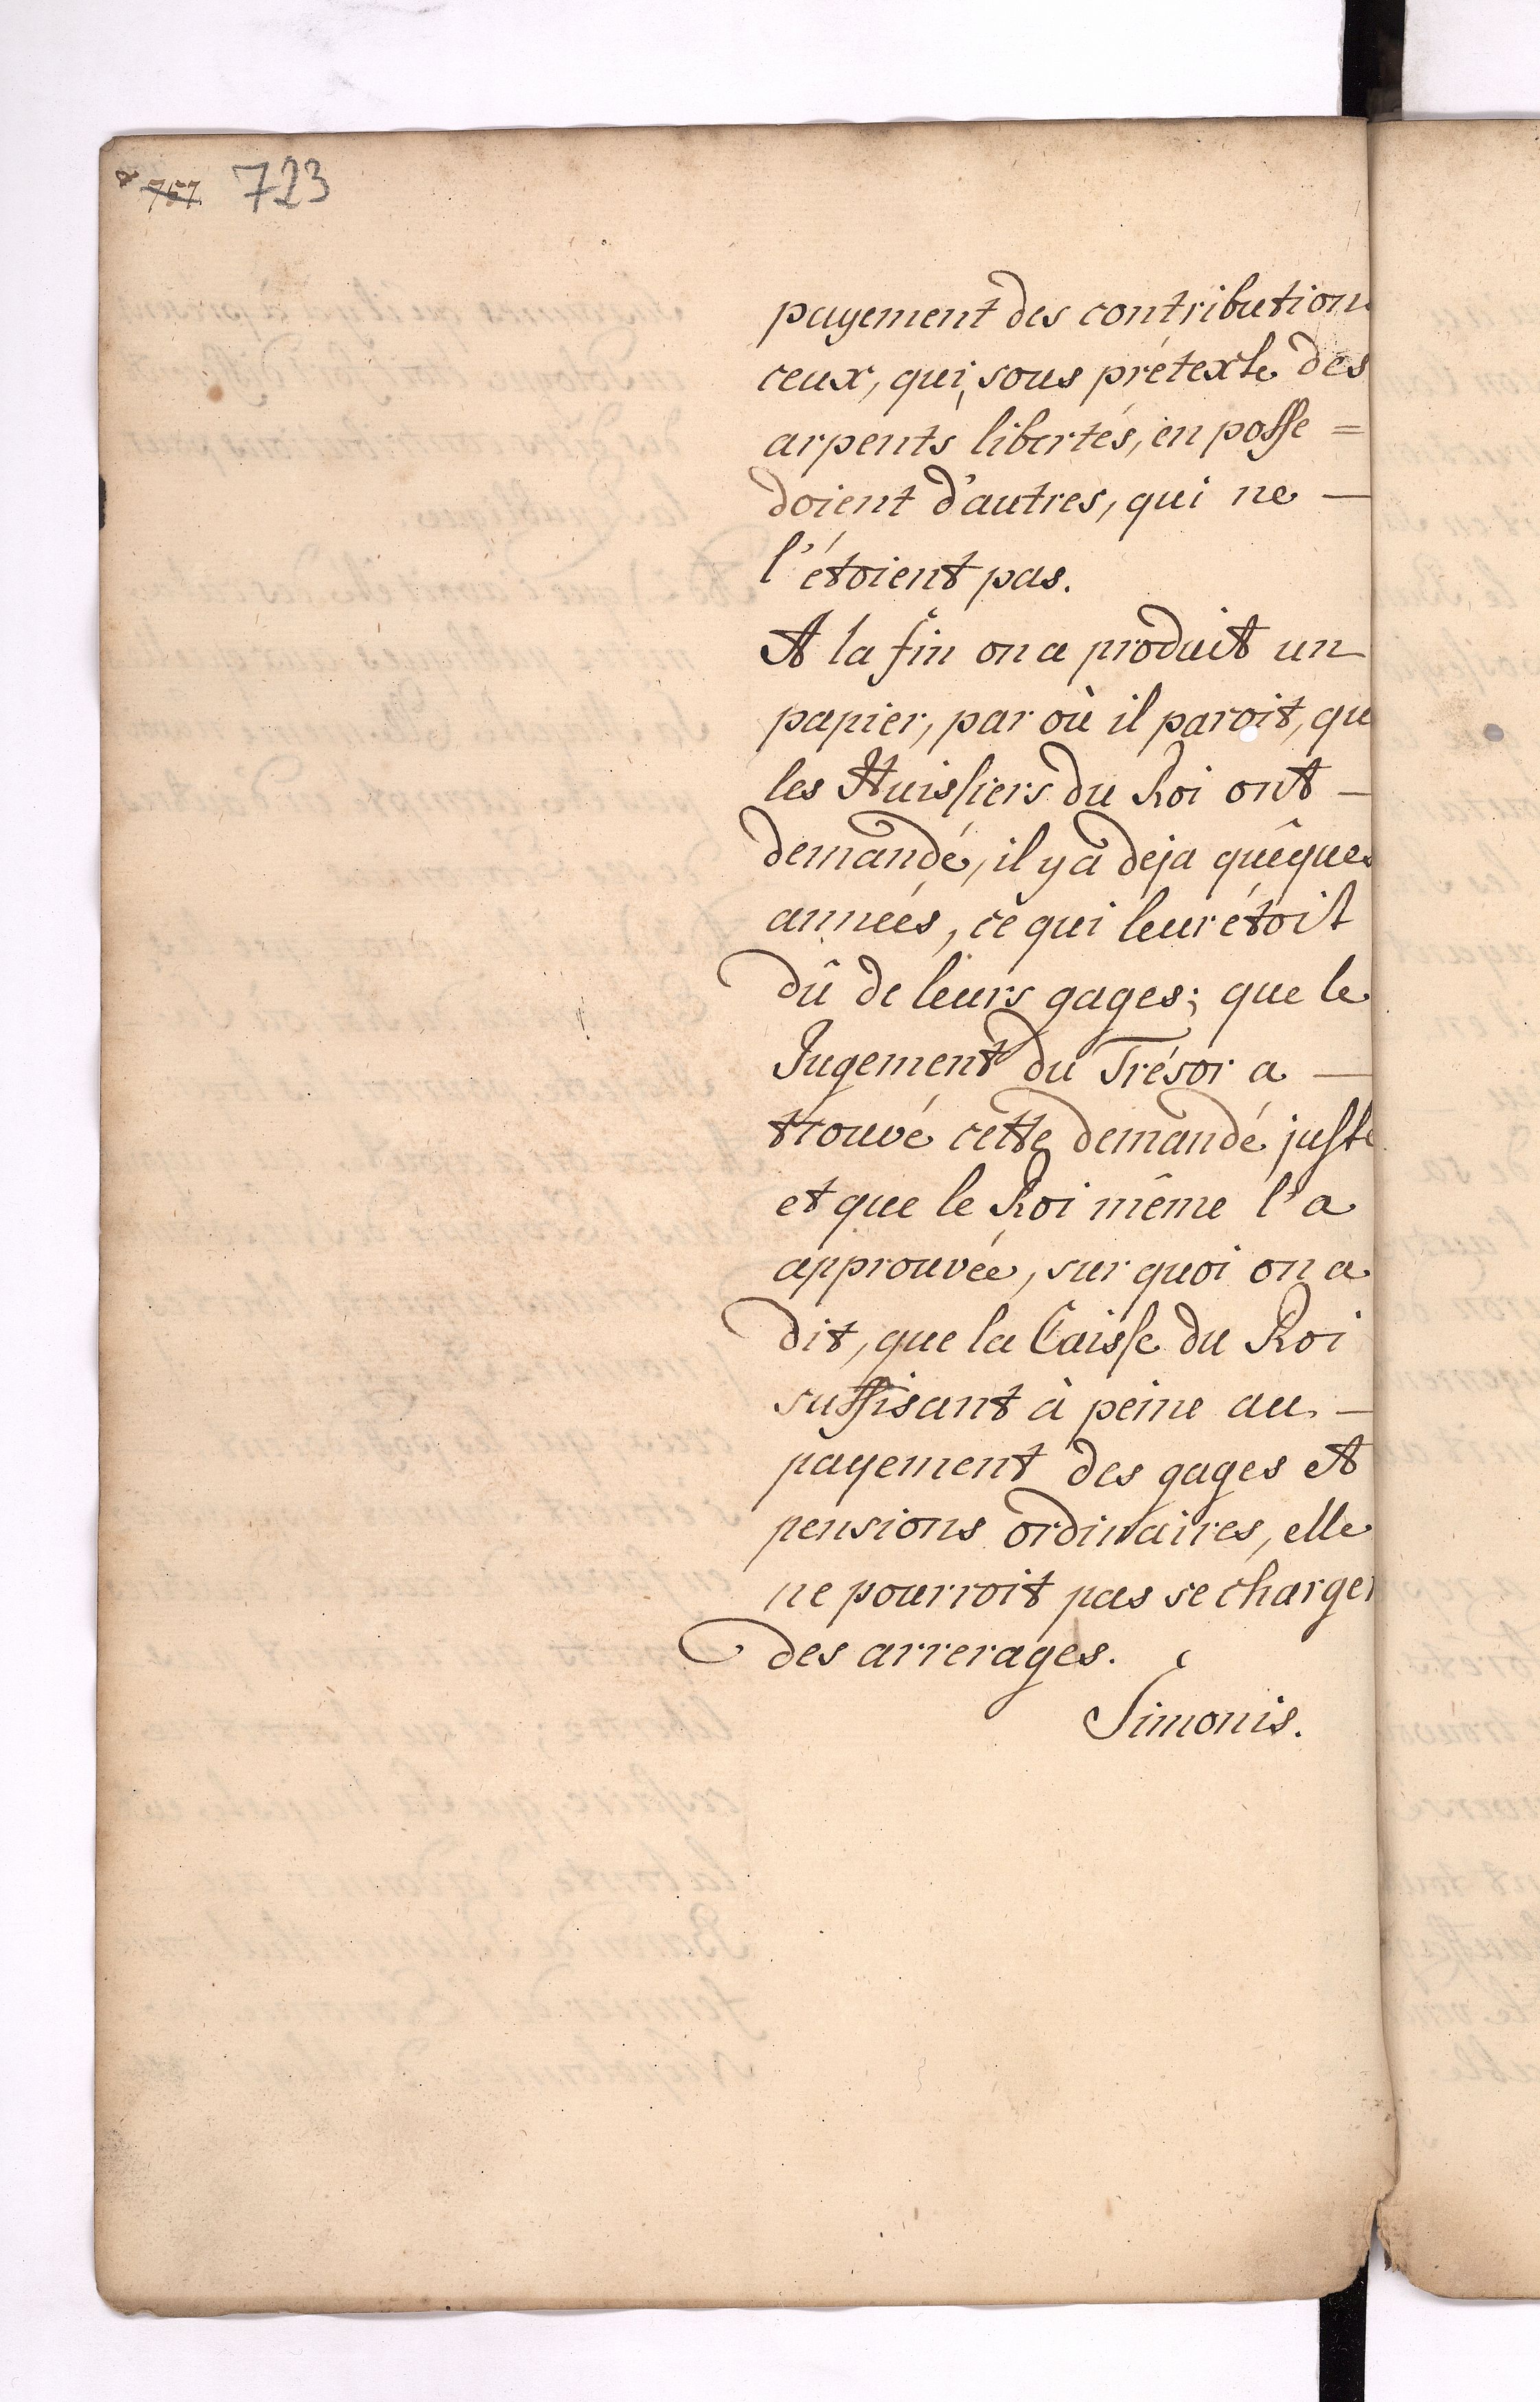 757 723
payement des contribution
ceux, qui, sous prétexte des
arpents libertés, en posse =
doient d'autres, qui ne —
l'étoient pas.
A la fin on a produit un
papier, par où il paroit, qu
les Huissiers du Roi ont —
demandé, il y a deja quêques
années, ce qui leur étoit
dû de leurs gages; que le
Jugement du Trésor a —
trouvé cette demandé juste
et que le Roi même l'a
approuvée, sur quoi on a
dit, que la Caisse du Roi
suffisant à peine au —
payement des gages et
pensions ordinaires, elle
ne pourroit pas se charger
des arrerages.
Simonis.